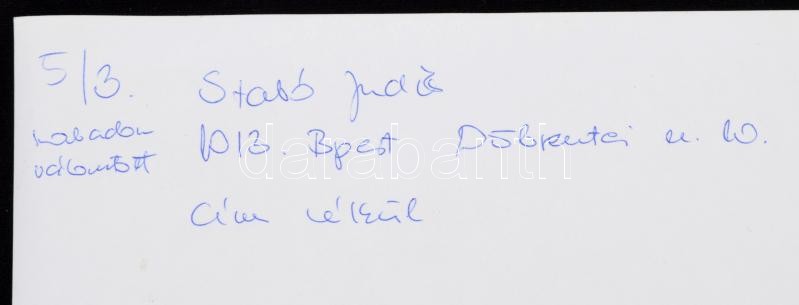 5/3. Szabó Judit
szabadon 1013. Bpest Döbrentei u. 10.
választott
Cím nélkül
darabanth